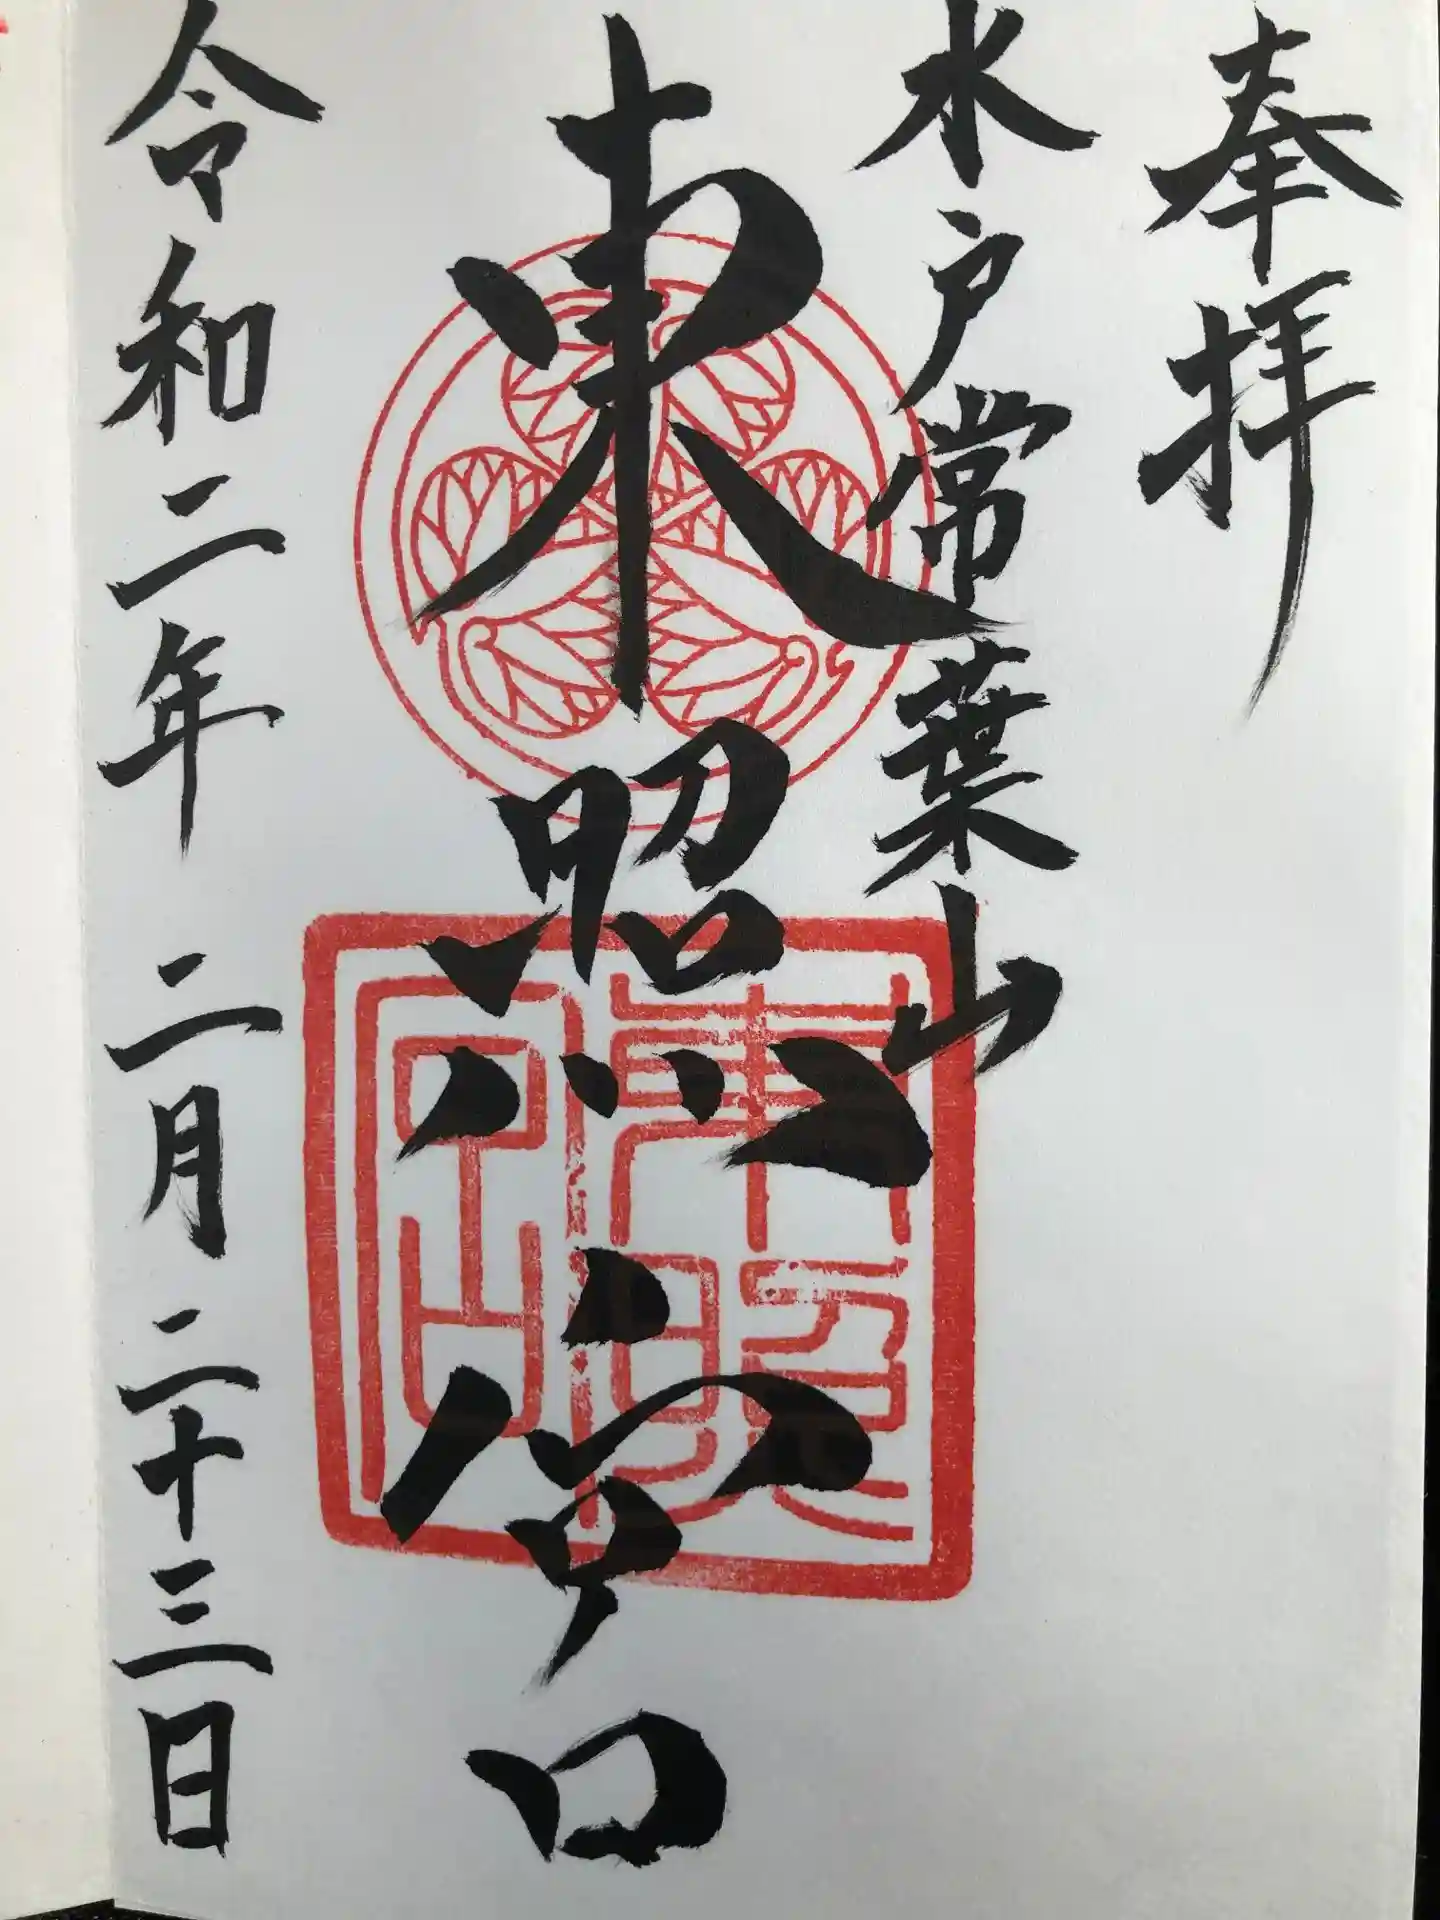 奉拝
水戸常葉山
東照宮
東照宮
令和二年 二月 二十三日